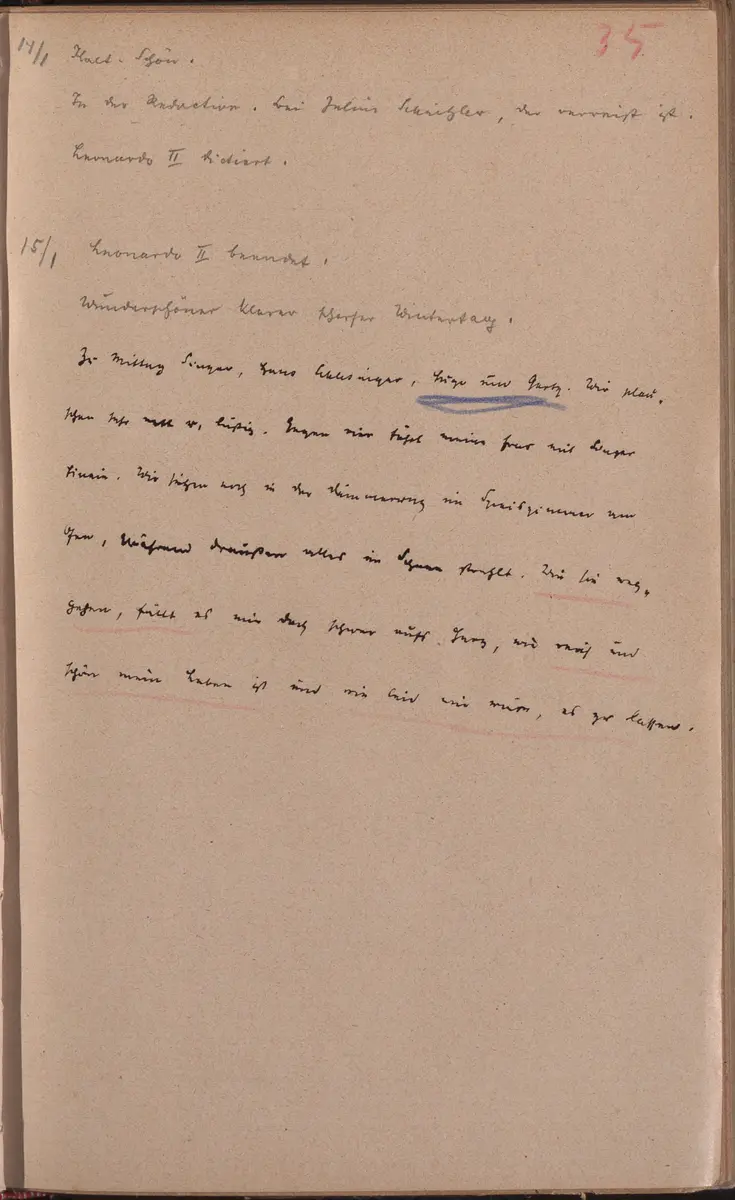 35
14/1 Kalt. Schön.
In der Redaction. Bei Julius Schnitzler, der verreist ist.
Leonardo II dictiert.
15/1 Leonardo II beendet.
Wunderschöner klarer scharfer Wintertag.
Zu Mittag Singer, Hans Schlesinger, Hugo und Gerty. Wir plau-
schen sehr nett u. lustig. Gegen vier fährt meine Frau mit Singer
hinein. Wir sitzen noch in der Dämmerung im Speiszimmer am
Ofen, während draußen alles im Schnee strahlt. Wie sie weg-
gehen, fällt es mir doch schwer aufs Herz, wie reich und
schön mein Leben ist und wie leid mir wäre, es zu lassen.